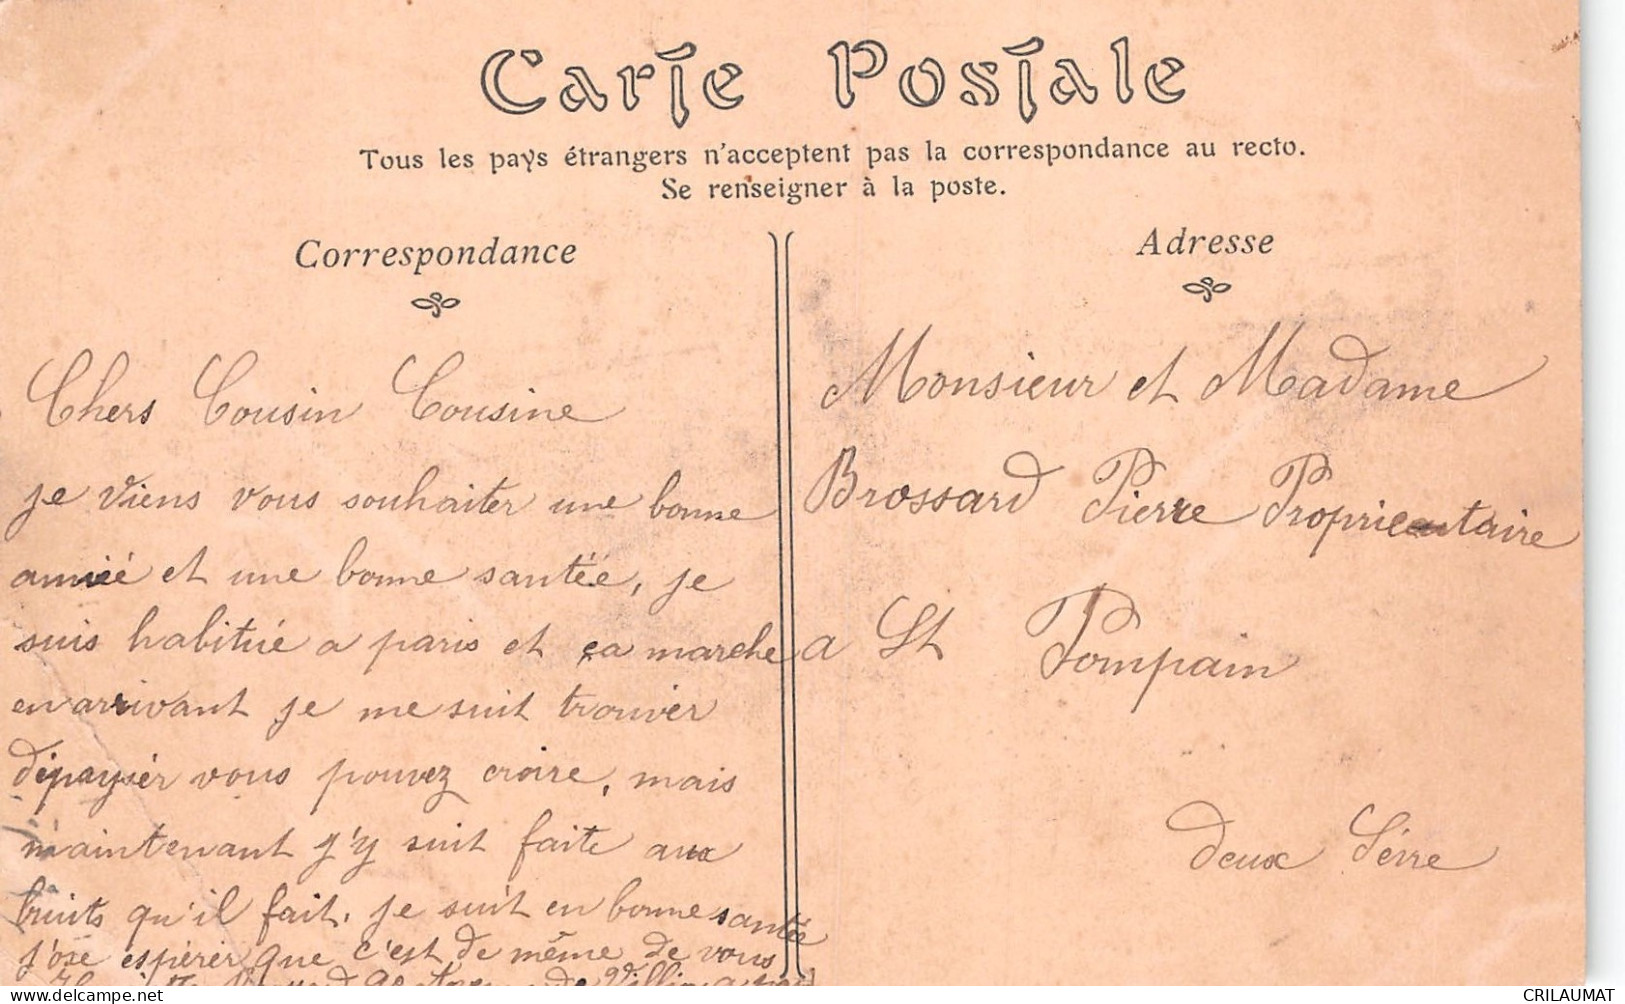 Carte Postale
Tous les pays étrangers n'acceptent pas la correspondance au recto.
Se renseigner à la poste.
Correspondance
Chers Cousin Cousine
je viens vous souhaiter une bonne
anniée et une bonne santée, je
suis habitué a paris et ça marche
en arrivant je me suit trouvér
dépaysér vous pouvez croire, mais
maintenant j'y suit faite aux
bruits qu'il fait, je suit en bonne santée
j'ose espérér que c'est de même de vous
de
Adresse
Monsieur et Madame
Brossard Pierre Proprieutaire
a St Pompain
deux Sévre
hippostcard.com
CRILAUMAT